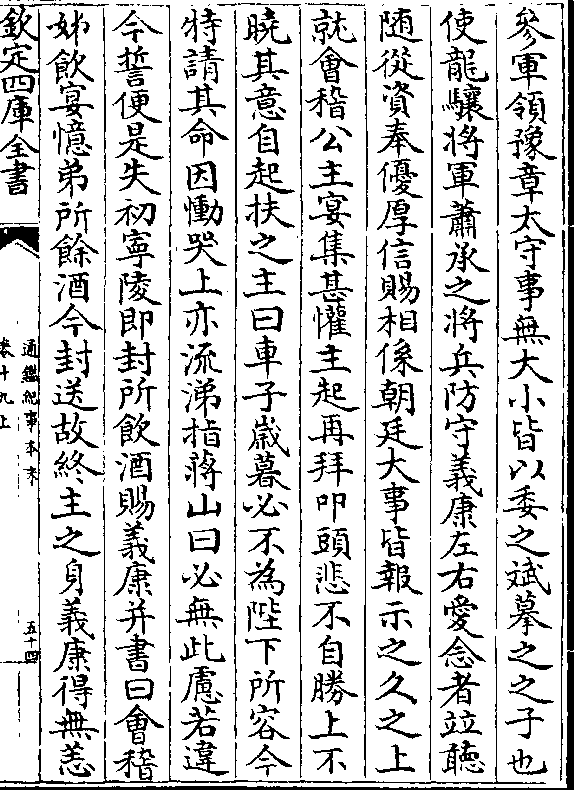 參軍領豫章太守事無大小皆以委之斌摹之之子也
使龍驤將軍蕭承之將兵防守義康左右愛念者竝聽
随從資奉優厚信賜相係朝廷大事皆報示之久之上
就會稽公主宴集甚懽主起再拜叩頭悲不自勝上不
曉其意自起扶之主曰車子嵗暮必不為陛下所容今
特請其命因慟哭上亦流涕指蔣山曰必無此慮若違
今誓便是失初寧陵即封所飲酒賜義康并書曰會稽
姊飲宴憶弟所餘酒今封送故終主之身義康得無恙
欽定四庫全書
通鑑紀事本末
卷十九上
五十四